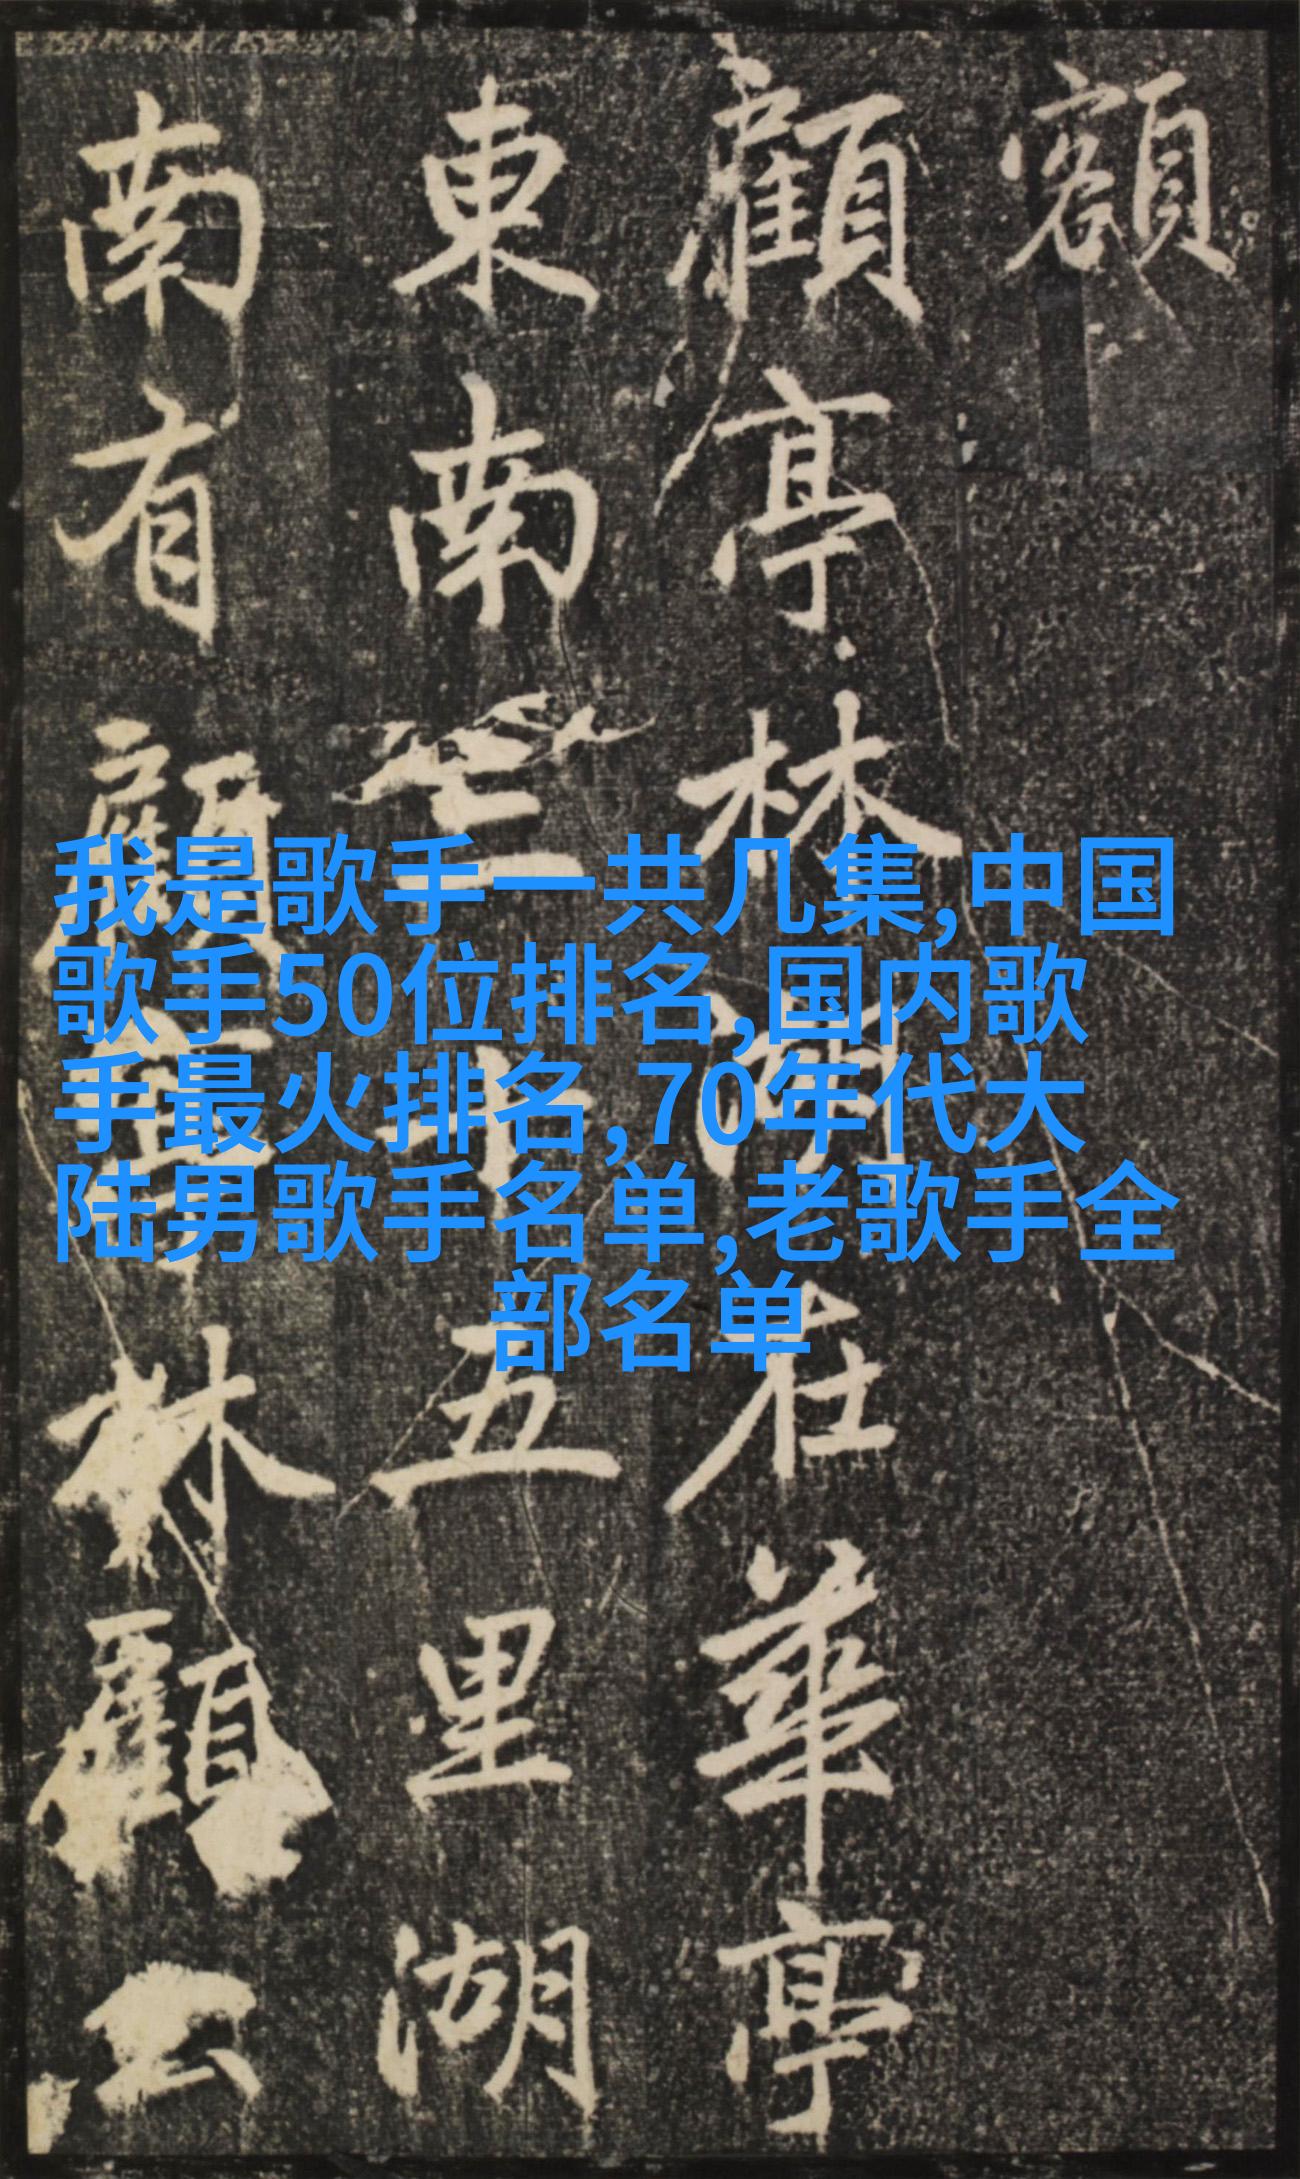 額
顧亭林湖在華亭
東南三十五里湖
南有顧亭林顧公
我是歌手一共几集,中国
歌手50位排名,国内歌
手最火排名,70年代大
陆男歌手名单,老歌手全
部名单